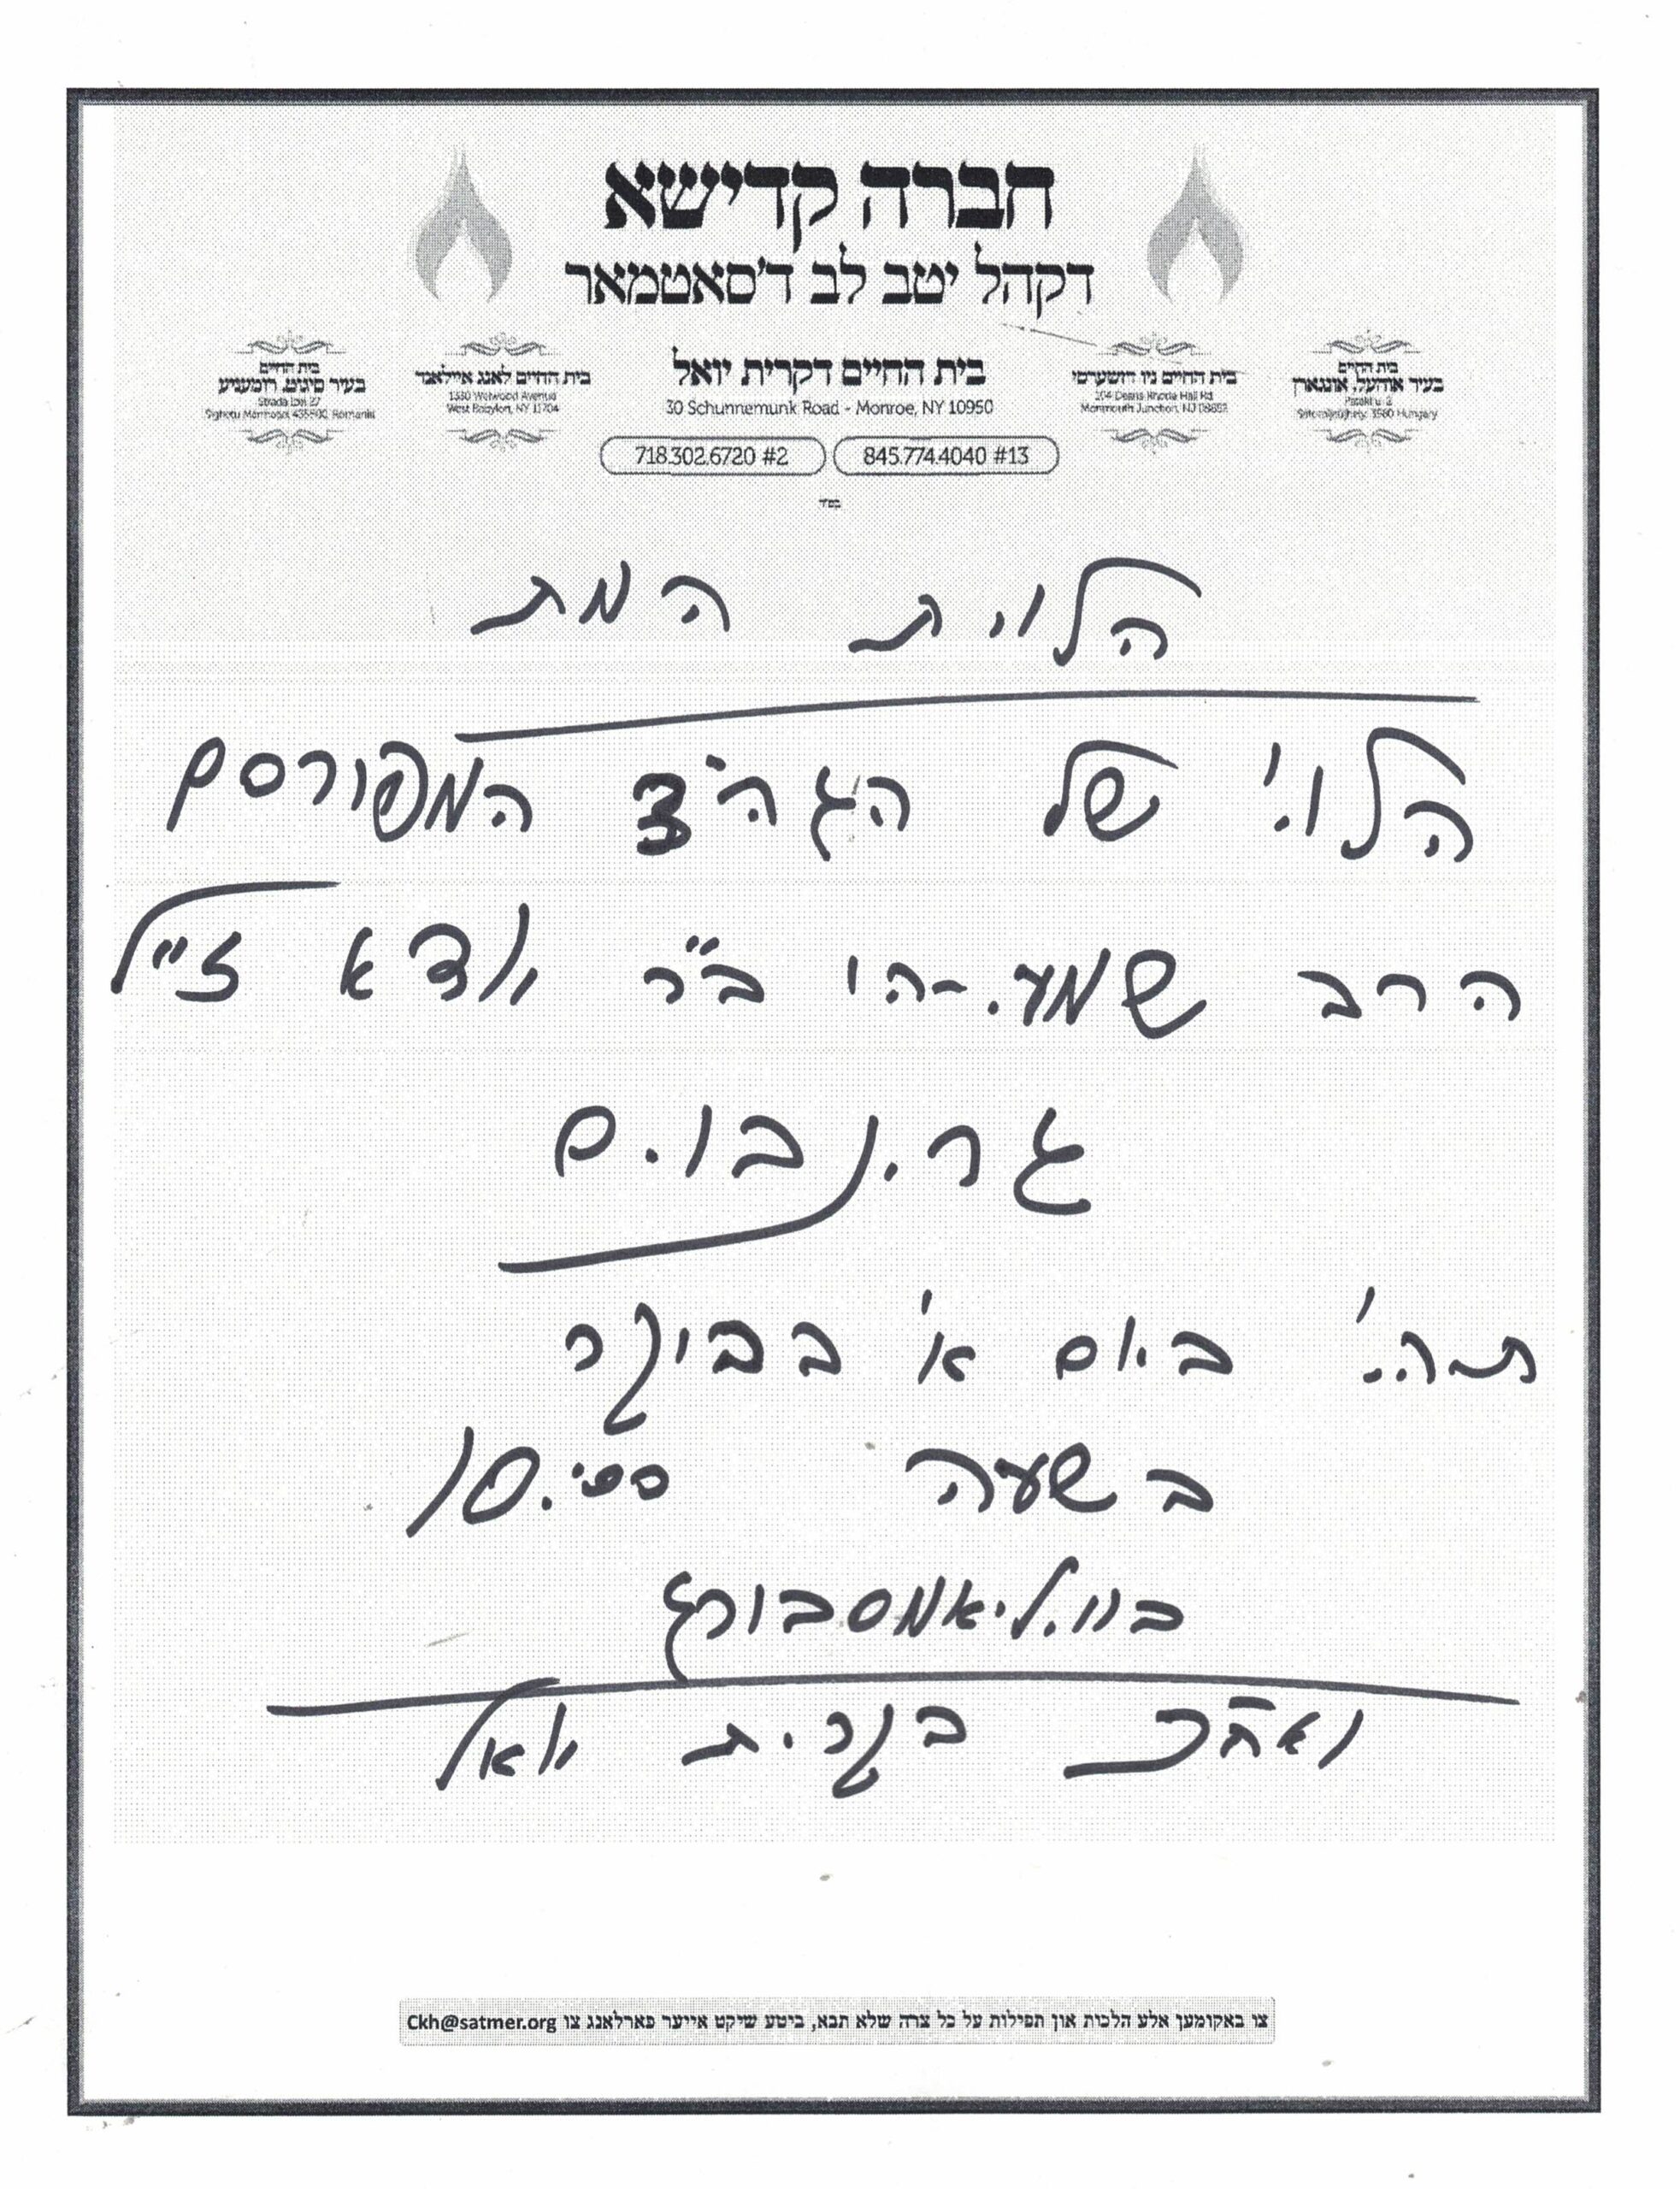 חברה קדישא
דקהל יטב לב ד'סאטמאר
בית החיים
בעיר אוהעל, אונגארן
Pataki u. 2
Sátoraljaújhely, 3980 Hungary
בית החיים ניו דזשערסי
204 Deans Rhode Hall Rd
Monmouth Junction, NJ 08852
בית החיים דקרית יואל
30 Schunnemunk Road - Monroe, NY 10950
בית החיים לאנג איילאנד
1330 Wellwood Avenue
West Babylon, NY 11704
בית החיים
בעיר סיגוט, רומעניע
Strada
Sighetu Marmației 435500, Romania
718.302.6720 #2
845.774.4040 #13
בס"ד
הלוית המת
הלוי' של הגה"צ המפורסם
הרב שמעי-הו ב"ר יודא ז"ל
גרינבוים
תהי' ביום א' בבוקר
בשעה 10
בוויליאמסבורג
ואח"כ בקרית יואל
צו באקומען אלע הלכות און תפילות על כל צרה שלא תבא, ביטע שיקט אייער פארלאנג צו Ckh@satmer.org